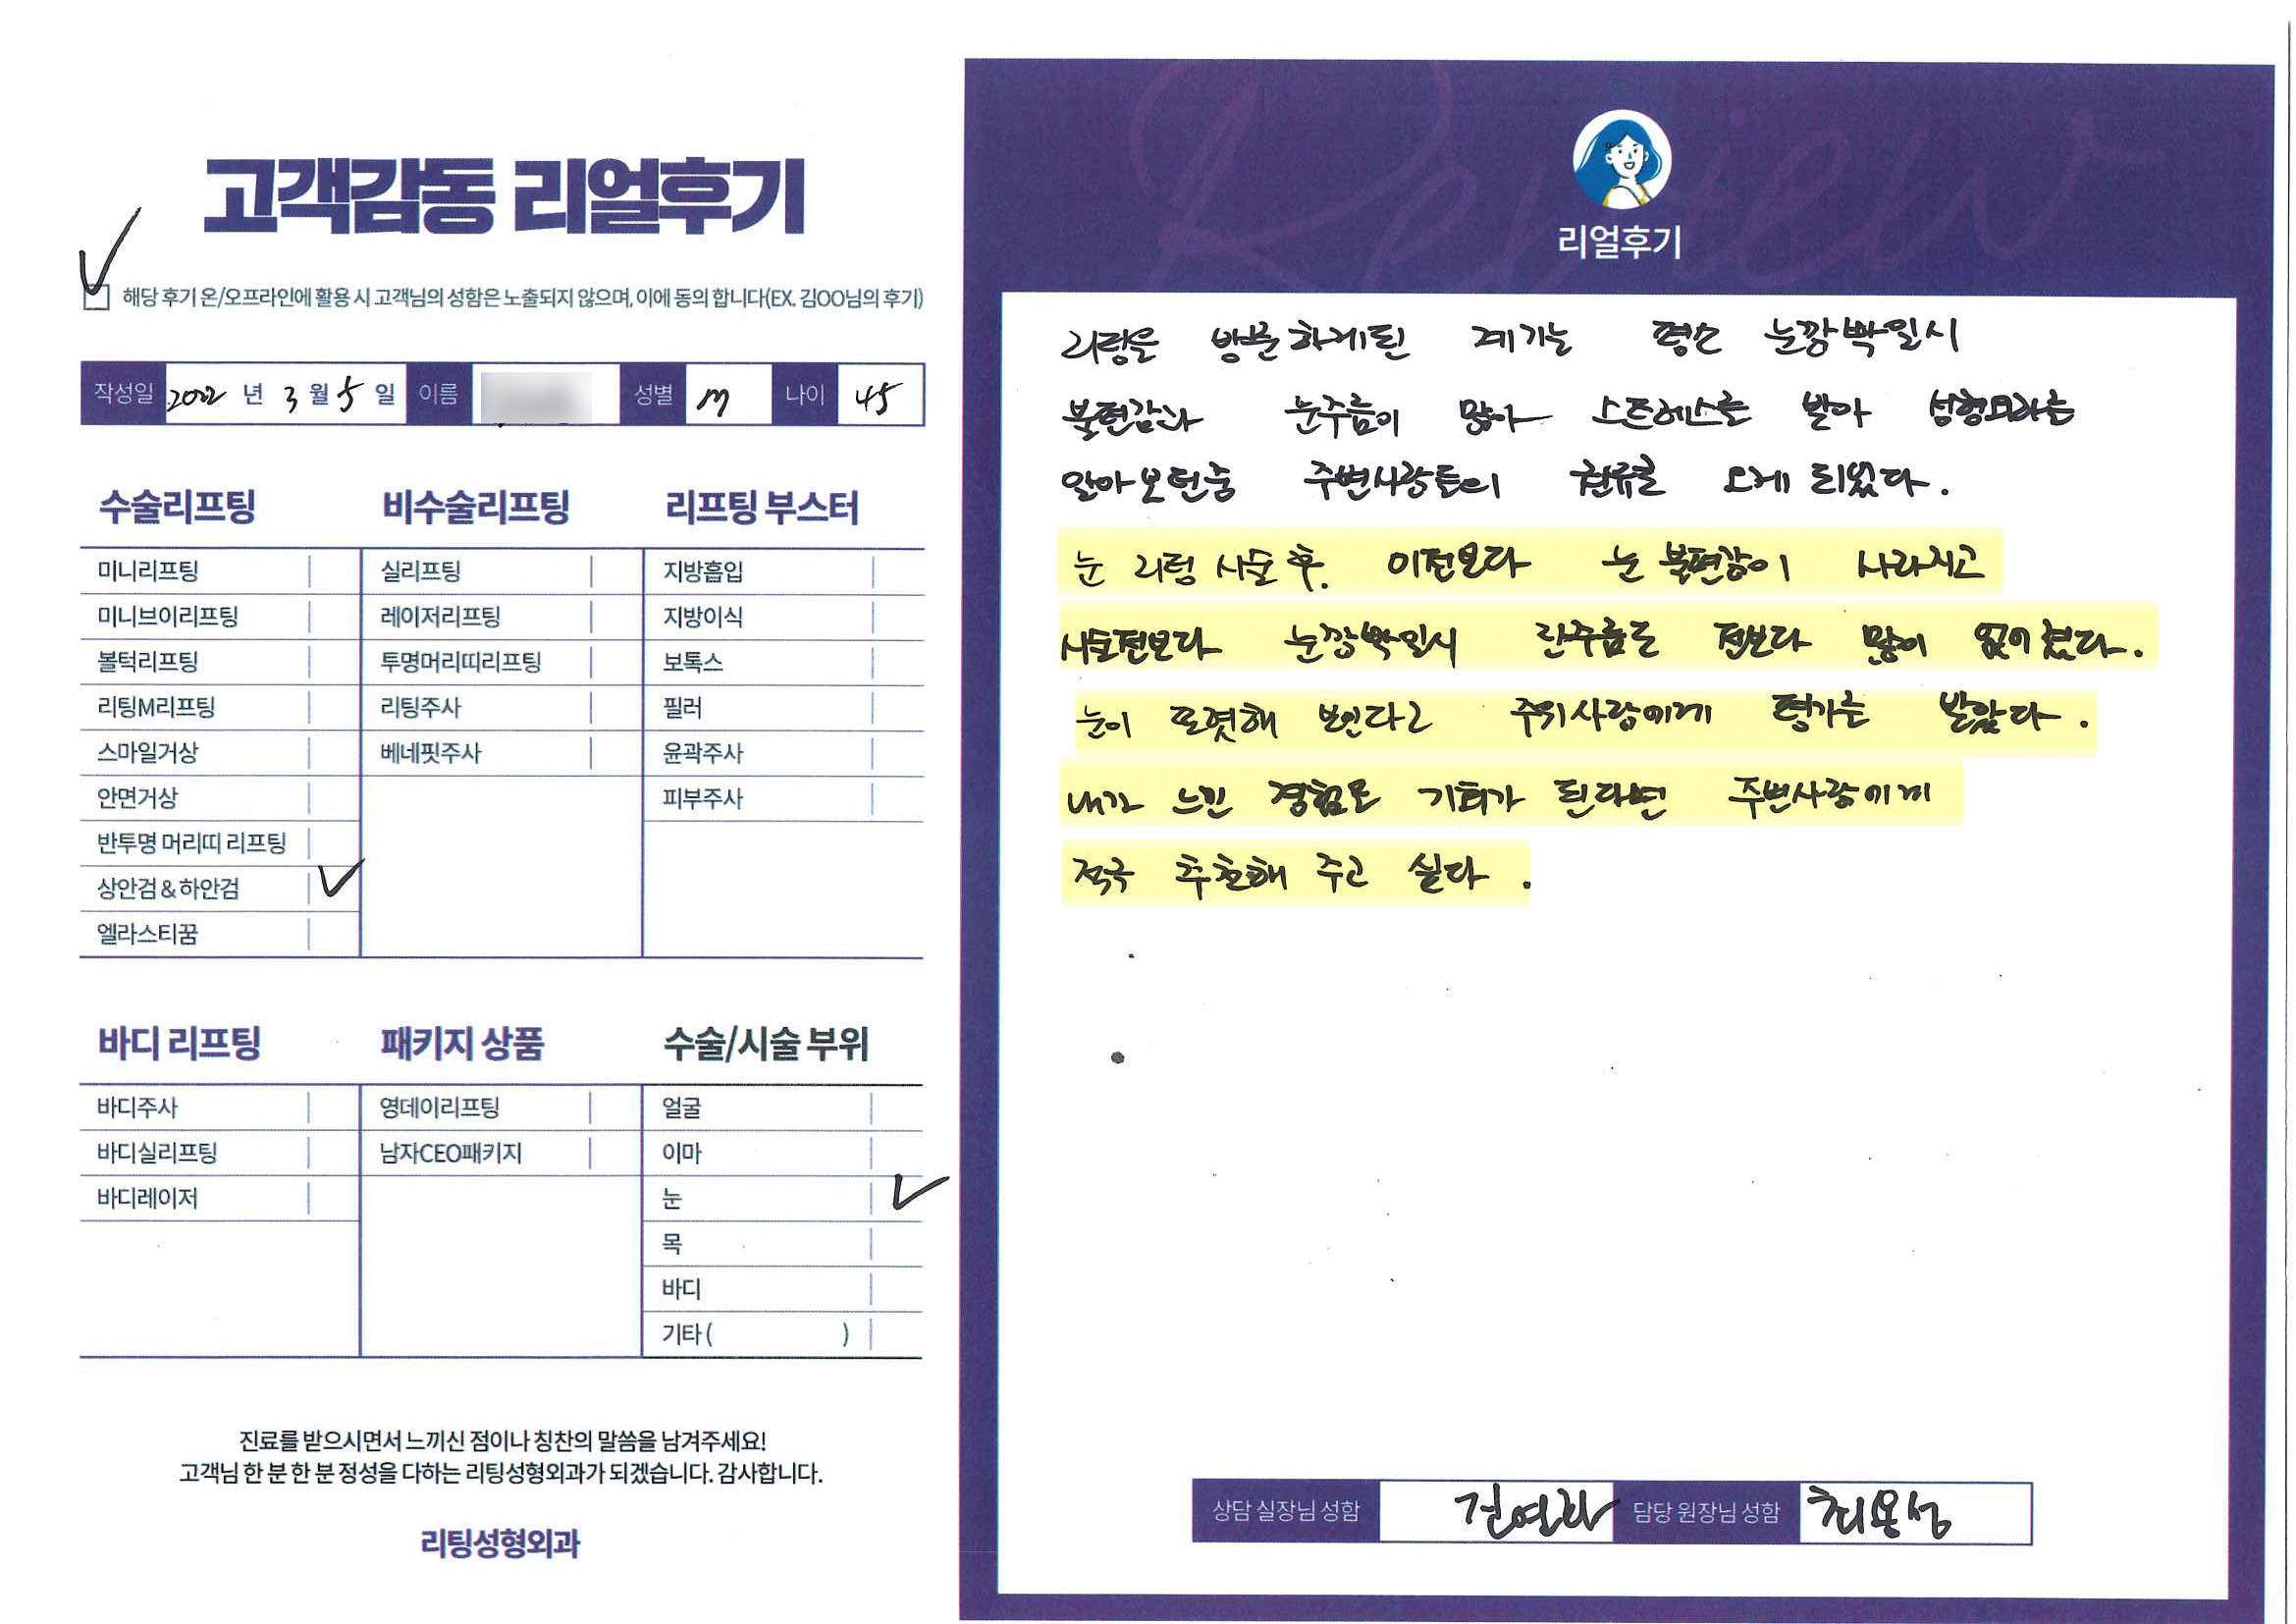 고객감동 리얼후기
해당 후기 온/오프라인에 활용 시 고객님의 성함은 노출되지 않으며, 이에 동의 합니다(EX. 김OO님의 후기)
작성일 2022 년 3 월 5 일 이름 성별 M 나이 45
수술리프팅
미니리프팅
미니브이리프팅
볼턱리프팅
리팅M리프팅
스마일거상
안면거상
반투명 머리띠 리프팅
상안검 & 하안검
엘라스티꿈
비수술리프팅
실리프팅
레이저리프팅
투명머리띠리프팅
리팅주사
베네핏주사
리프팅 부스터
지방흡입
지방이식
보톡스
필러
윤곽주사
피부주사
바디 리프팅
바디주사
바디실리프팅
바디레이저
패키지 상품
영데이리프팅
남자CEO패키지
수술/시술 부위
얼굴
이마
눈
목
바디
기타 ( )
진료를 받으시면서 느끼신 점이나 칭찬의 말씀을 남겨주세요!
고객님 한 분 한 분 정성을 다하는 리팅성형외과가 되겠습니다. 감사합니다.
리팅성형외과
Review
리얼후기
리팅을 방문하게된 계기는 평소 눈깜박일시
불편감과 눈주름이 많아 스트레스를 받아 성형외과를
알아보던중 주변사람들의 권유로 오게 되었다.
눈 리팅 시술 후. 이전보다 눈 불편감이 사라지고
시술전보다 눈깜박일시 잔주름도 전보다 많이 없어졌다.
눈이 또렷해 보인다고 주위사람에게 평가를 받았다.
내가 느낀 경험으로 기회가 된다면 주변사람에게
적극 추천해 주고 싶다.
상담 실장님 성함 담당 원장님 성함